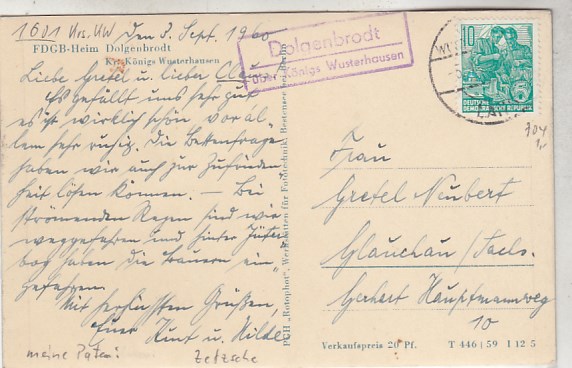 1601 Krs. KW
den 3. Sept. 1960
FDGB-Heim Dolgenbrodt
Kr. Königs Wusterhausen
Liebe Gretel u. lieber
Es gefällt uns sehr gut
es ist wirklich schön vor al-
lem sehr ruhig. Die Bettenfrage
haben wir auch zur Zufrieden-
heit lösen können. — Bei
strömenden Regen sind wir
weggefahren und hinter Jüter-
bog haben die
Mit herzlichsten Grüßen,
Euer Kurt u. Hilde
meine Paten!
Zetzsche
Dolgenbrodt
über Königs Wusterhausen
PGH „Rotophot", Werkstätten für Fototechnik, Bestensee bei Berlin
10
DEUTSCHE
DEMOKRATISCHE REPUBLIK
Frau
Gretel Neubert
Glauchau / Sachs.
Gerhert Hauptmannweg
10
Verkaufspreis 20 Pf.
T 446 | 59 I 12 5